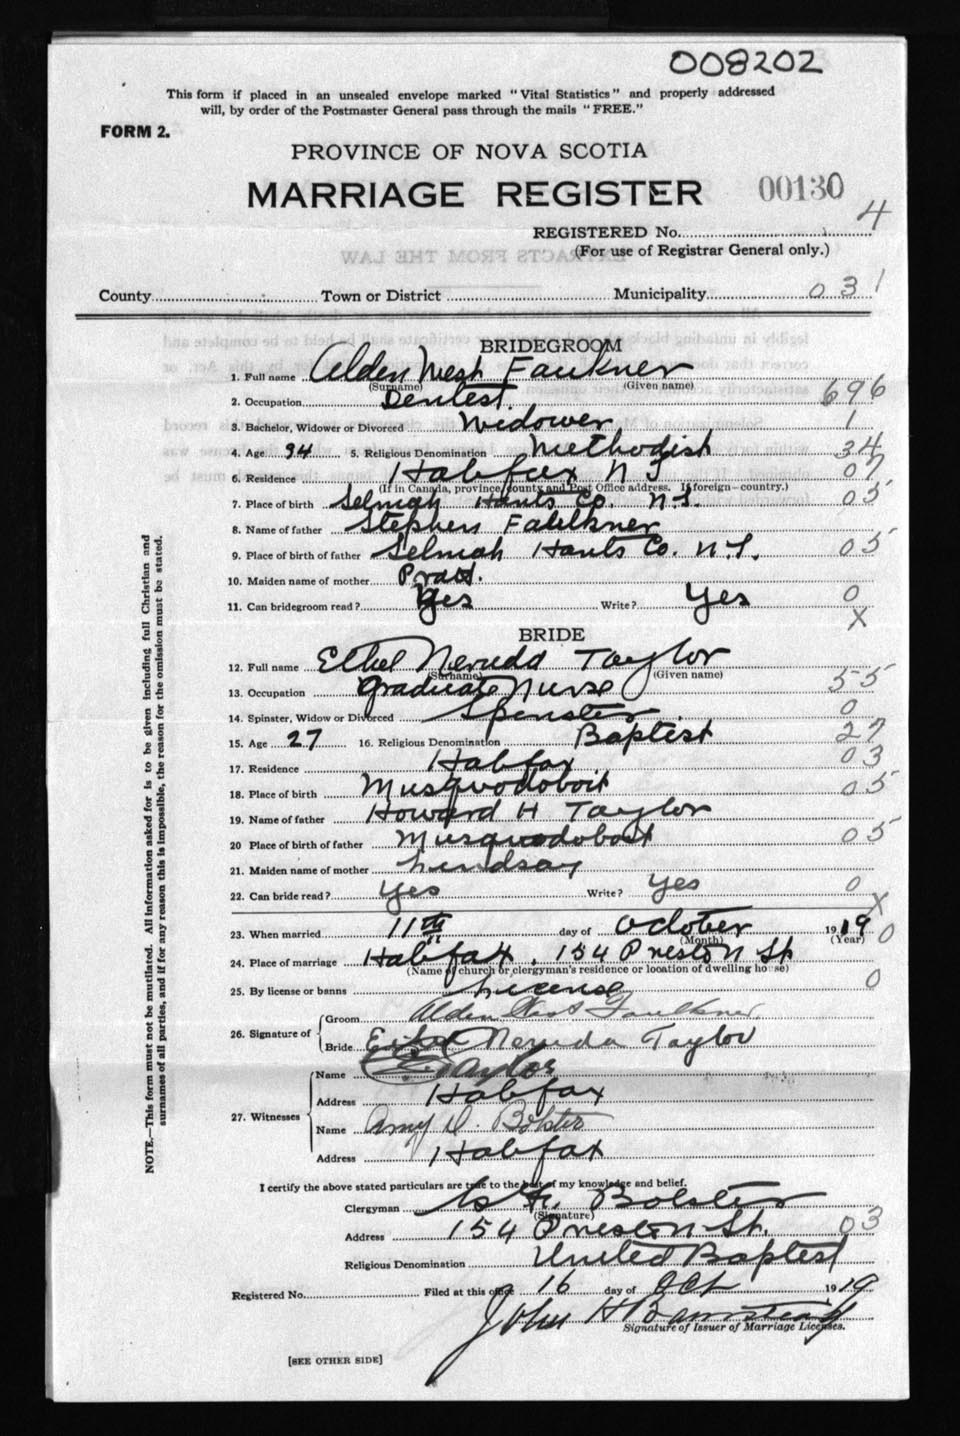 008202
This form if placed in an unsealed envelope marked "Vital Statistics" and properly addressed
will, by order of the Postmaster General pass through the mails "FREE."
FORM 2.
PROVINCE OF NOVA SCOTIA
MARRIAGE REGISTER 00130
REGISTERED No. 4
(For use of Registrar General only.)
EXTRACTS FROM THE LAW
County Town or District Municipality 031
BRIDEGROOM
1. Full name Alden West Faulkner
(Surname) (Given name)
2. Occupation Dentest. 696
3. Bachelor, Widower or Divorced Widower 1
4. Age 34 5. Religious Denomination Methodist 34
6. Residence Halifax N S 07
(If in Canada, province, county and Post Office address. If foreign—country.)
7. Place of birth Selmah Hants Co. N.S. 05
8. Name of father Stephen Faulkner
9. Place of birth of father Selmah Hants Co. N.S. 05
10. Maiden name of mother Pratt.
11. Can bridegroom read? Yes Write? Yes 0
X
BRIDE
12. Full name Ethel Neruda Taylor
(Surname) (Given name)
13. Occupation Graduate Nurse 55
14. Spinster, Widow or Divorced Spenster 0
15. Age 27 16. Religious Denomination Baptist 27
17. Residence Halifax 03
18. Place of birth Musquodoboit 05
19. Name of father Howard H Taylor
20 Place of birth of father Musquodoboit 05
21. Maiden name of mother Lindsay
22. Can bride read? yes Write? yes 0
X
23. When married 11th day of October 1919 0
(Month) (Year)
24. Place of marriage Halifax, 154 Preston St
(Name of church or clergyman's residence or location of dwelling house)
25. By license or banns License 0
26. Signature of Groom Alden West Faulkner.
Bride Ethel Neruda Taylor
27. Witnesses Name Taylor
Address Halifax
Name Amy D. Bolster
Address Halifax
I certify the above stated particulars are true to the best of my knowledge and belief.
Clergyman Bolster
(Signature)
Address 154 Preston St. 03
Religious Denomination United Baptist
Registered No. Filed at this office 16 day of Oct 1919
John H Barnstead
Signature of Issuer of Marriage Licenses.
[SEE OTHER SIDE]
NOTE.—This form must not be mutilated. All information asked for is to be given including full Christian and
surnames of all parties, and if for any reason this is impossible, the reason for the omission must be stated.